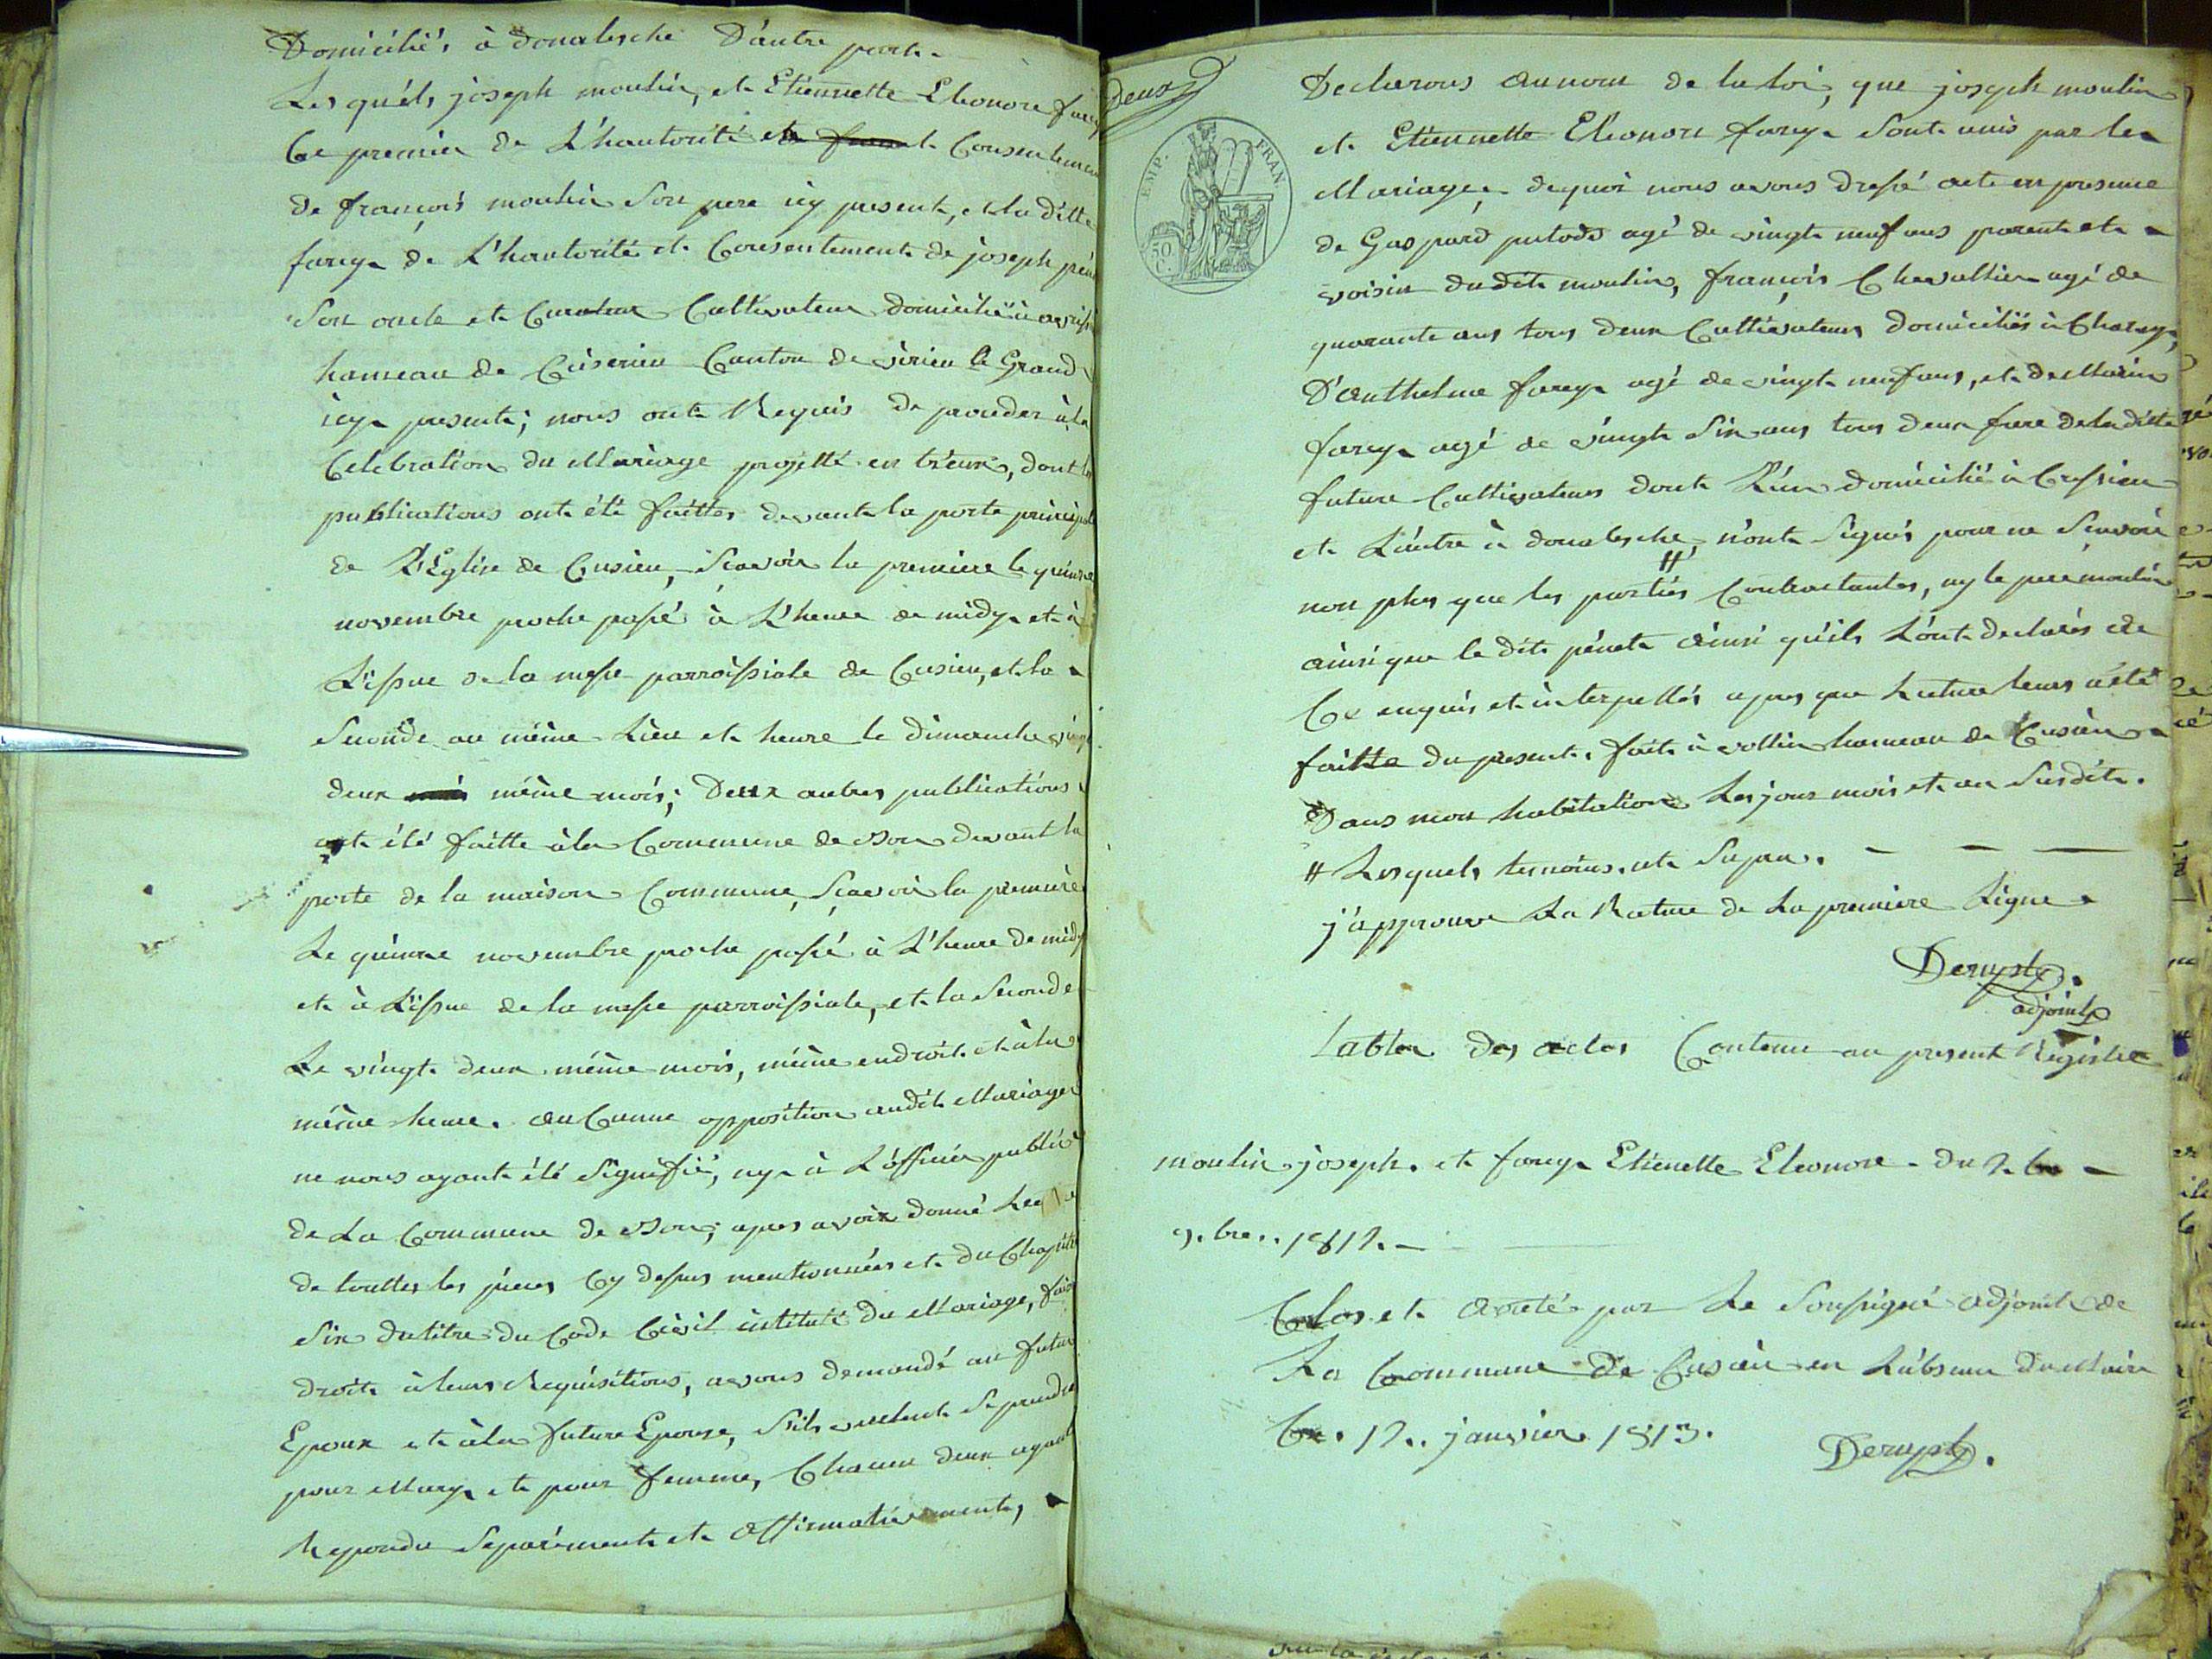 Domiciliés à donalesche D'autre part.
Les quéls joseph moulin, et Etiennette Eléonore farcy
Ce premier de L'hautorité et consentement
de françois moulin Son pere icy present, et la ditte
farcy de L'hautorité et Consentement de joseph
Son oncle et Curateur Cultivateur domicilié à
hameau de Ceiserieu Canton de virieu le Grand
icy present; nous ont Requis de proceder à la
Celebration du Mariage projetté entr'eux, dont les
publications ont été faittes devant la porte principale
de L'Eglise de Cusieu, Scavoir la premiere le quinze
novembre proche passé à L'heure de midy et à
L'issue de la messe parroissiale de Cusieu, et la
Seconde au même Lieu et heure le dimanche vingt
deux même mois; Deux autres publications
ont été faitte à la Commune de Don devant la
porte de la maison Commune, Scavoir la premiere
Le quinze novembre proche passé à L'heure de midy
et à L'issue de la messe parroissiale, et la Seconde
Le vingt deux même mois, même endroit et à la
même heure. auCunne opposition audit Mariage
ne nous ayant été Signifié, ny à L'officier public
de La Commune de Don; apres avoir donné
de touttes les pieces Cy dessus mentionnées et du Chapitre
Six du titre du Code Civil intitulé du Mariage,
droit à leurs Requisitions, avons demandé au futur
Epoux et à la future Epouse, S'ils veulent Se prendre
pour Mary et pour femme, Chacun deux ayant
Repondu Separément et affirmativement,
deux
EMP. FRAN.
50 C.
Declarons au nom de la loi, que joseph moulin
et Etiennette Eléonore farcy Sont unis par le
Mariage, de quoi nous avons dressé acte en presence
de Gaspard putod agé de vingt neuf ans parent et
voisin dudit moulin, françois Chevallier agé de
quarante ans tous deux Cultivateurs domiciliés à
D'anthelme farcy agé de vingt neuf ans, et de Marin
farcy agé de vingt Six ans tous deux frere de la ditte
future Cultivateurs dont L'un domicilié à Cressieu
et L'autre à donalesche, # n'ont Signés pour ne Scavoir
non plus que les partiés Contractantes, ny le pere moulin
ainsi que le dit pénet ainsi qu'ils L'ont declarés de
Ce enquis et interpellés apres que Lecture leurs a été
faitte du present. fait à vollien hameau de Cusieu
Dans mon habitation Les jour mois et an Susdit.
# Lesquels temoins. et
j'approuve La Rature de La premiere Ligne
Derupt.
adjoint
table des actes Contenu au present Registre
moulin joseph. et farcy Etienette Eleonore. du 2.
9.bre. 1812.
Clos et areté par Le Soussigné adjoint de
La Commune De Cusieu en L'absence du Maire
Ce. 12. janvier. 1813.
Derupt.